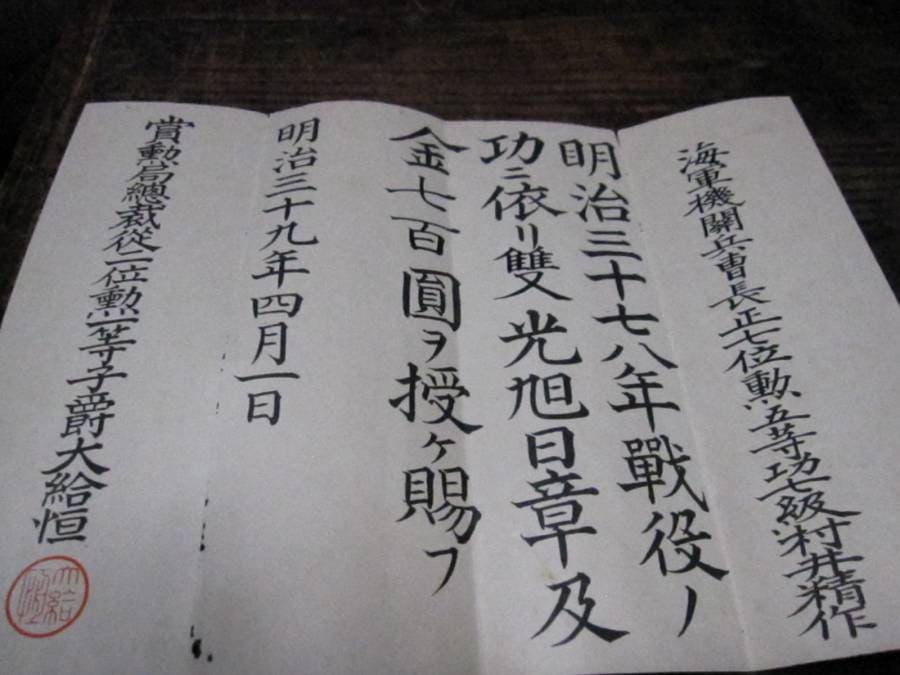 海軍機關兵曹長正七位勲五等功七級村井精作
明治三十七八年戰役ノ
功ニ依リ雙光旭日章及
金七百圓ヲ授ケ賜フ
明治三十九年四月一日
賞勲局總裁從二位勲一等子爵大給恒